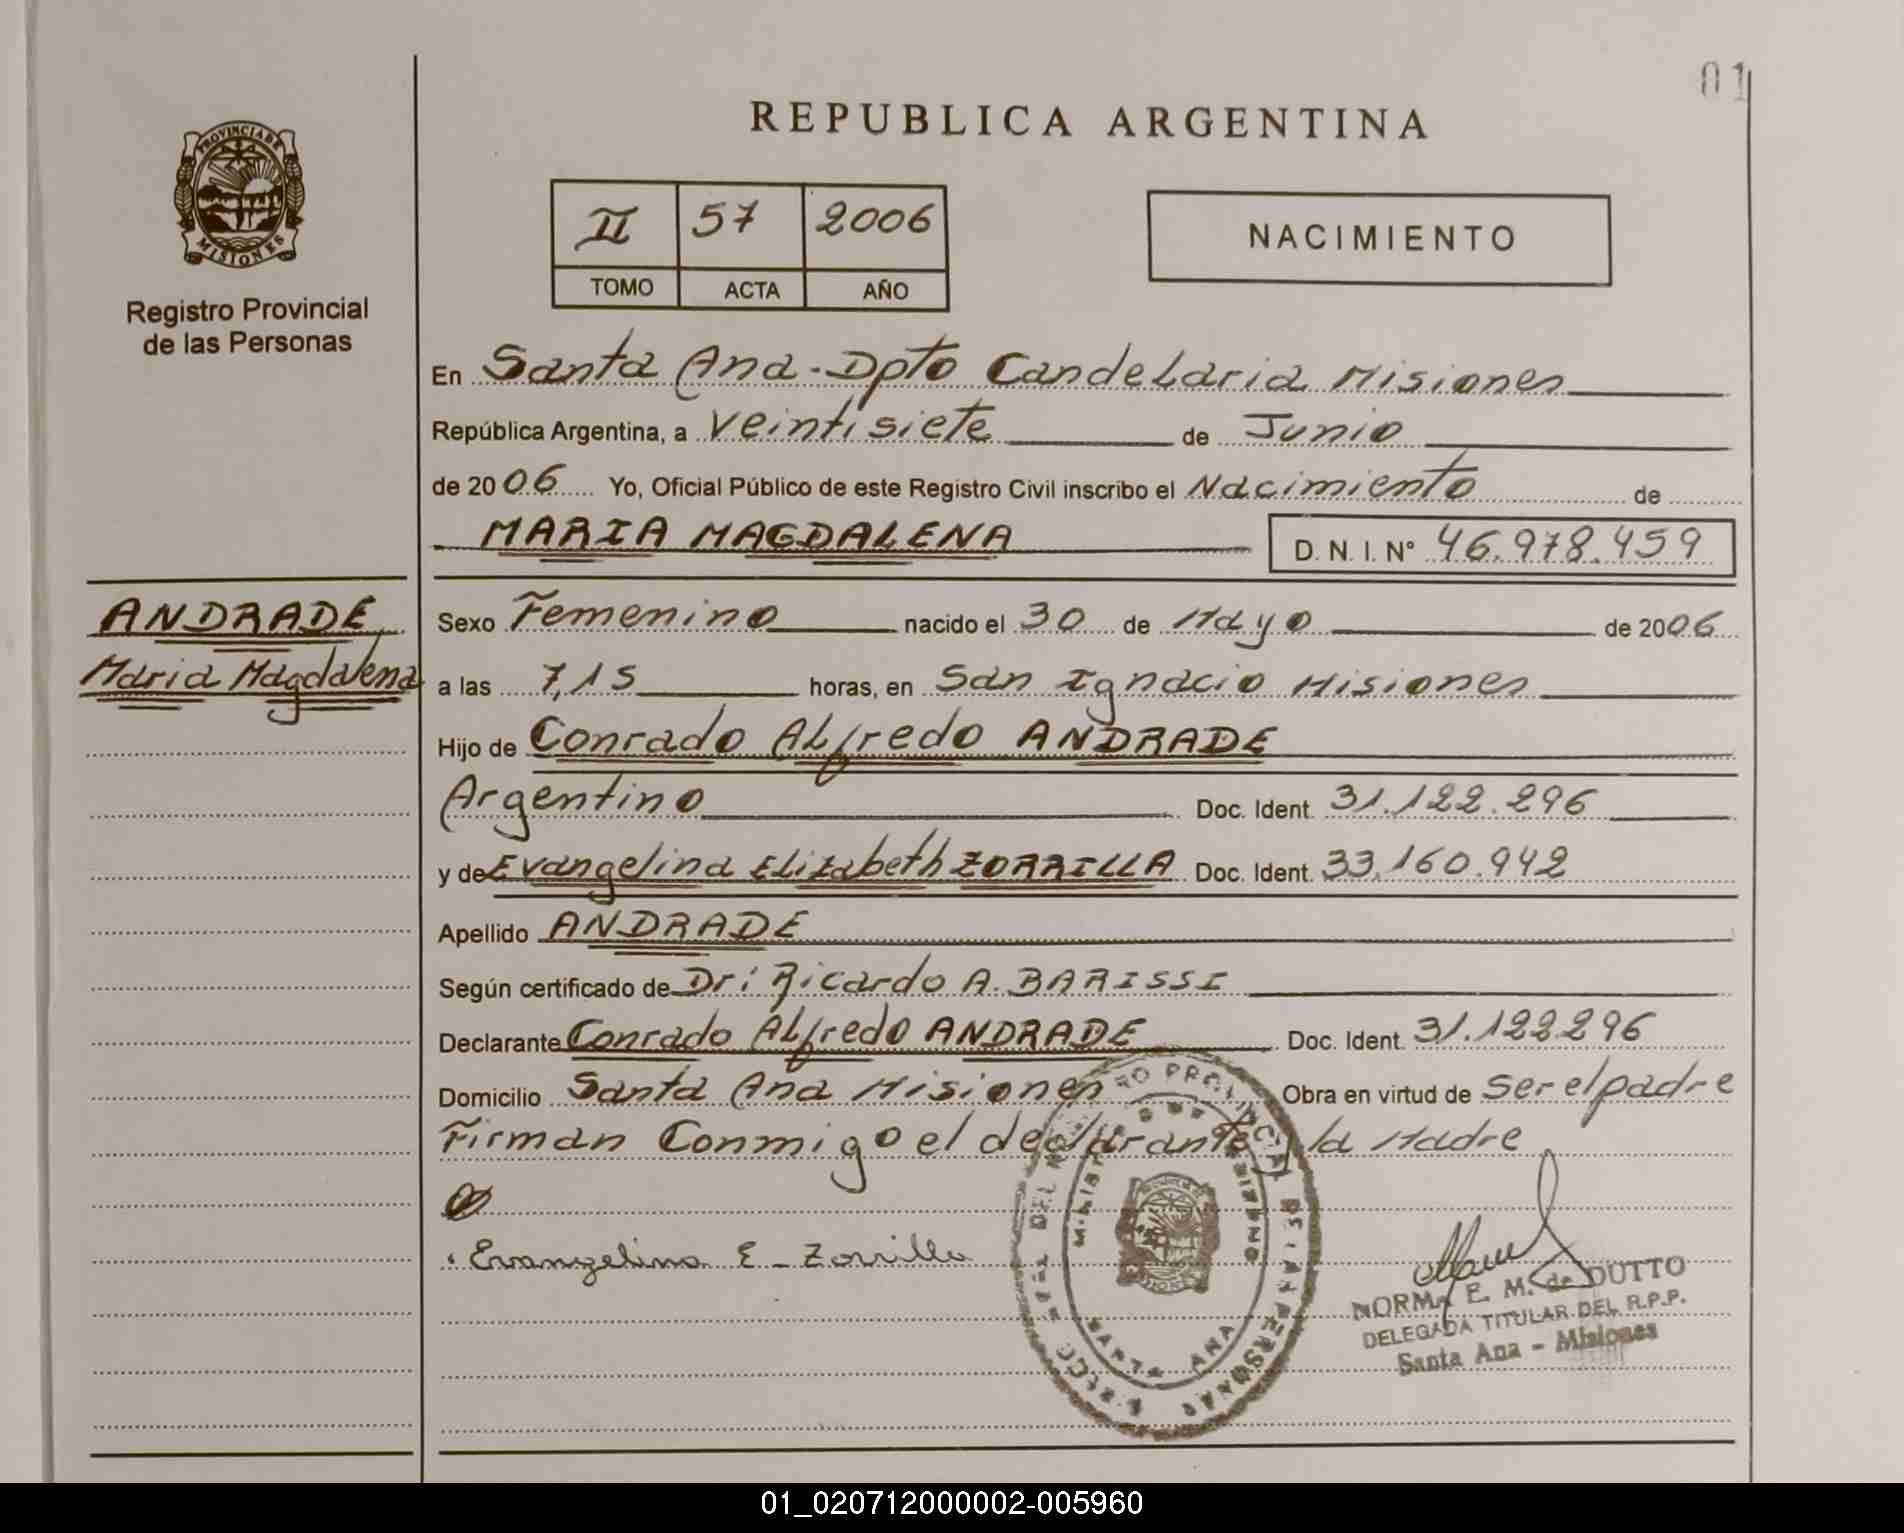 01
REPUBLICA ARGENTINA
PROVINCIA DE
MISIONES
Registro Provincial
de las Personas
II 57 2006
TOMO ACTA AÑO
NACIMIENTO
En Santa Ana-Dpto Candelaria Misiones
República Argentina, a veintisiete de Junio
de 2006 Yo, Oficial Público de este Registro Civil inscribo el Nacimiento de
MARIA MAGDALENA D. N. I. Nº 46.978.459
ANDRADE
Maria Magdalena
Sexo Femenino nacido el 30 de Mayo de 2006
a las 7,15 horas, en San Ignacio Misiones
Hijo de Conrado Alfredo ANDRADE
Argentino Doc. Ident. 31.122.296
y de Evangelina Elizabeth ZORRILLA Doc. Ident. 33.160.942
Apellido ANDRADE
Según certificado de Dr: Ricardo A. BARISSI
Declarante Conrado Alfredo ANDRADE Doc. Ident. 31.122296
Domicilio Santa Ana Misiones Obra en virtud de Ser el padre
Firman Conmigo el declarante y la Madre
Evangelina E - Zorrilla
SANTA ANA
NORMA E. M. de DUTTO
DELEGADA TITULAR DEL R.P.P.
Santa Ana - Misiones
01_020712000002-005960